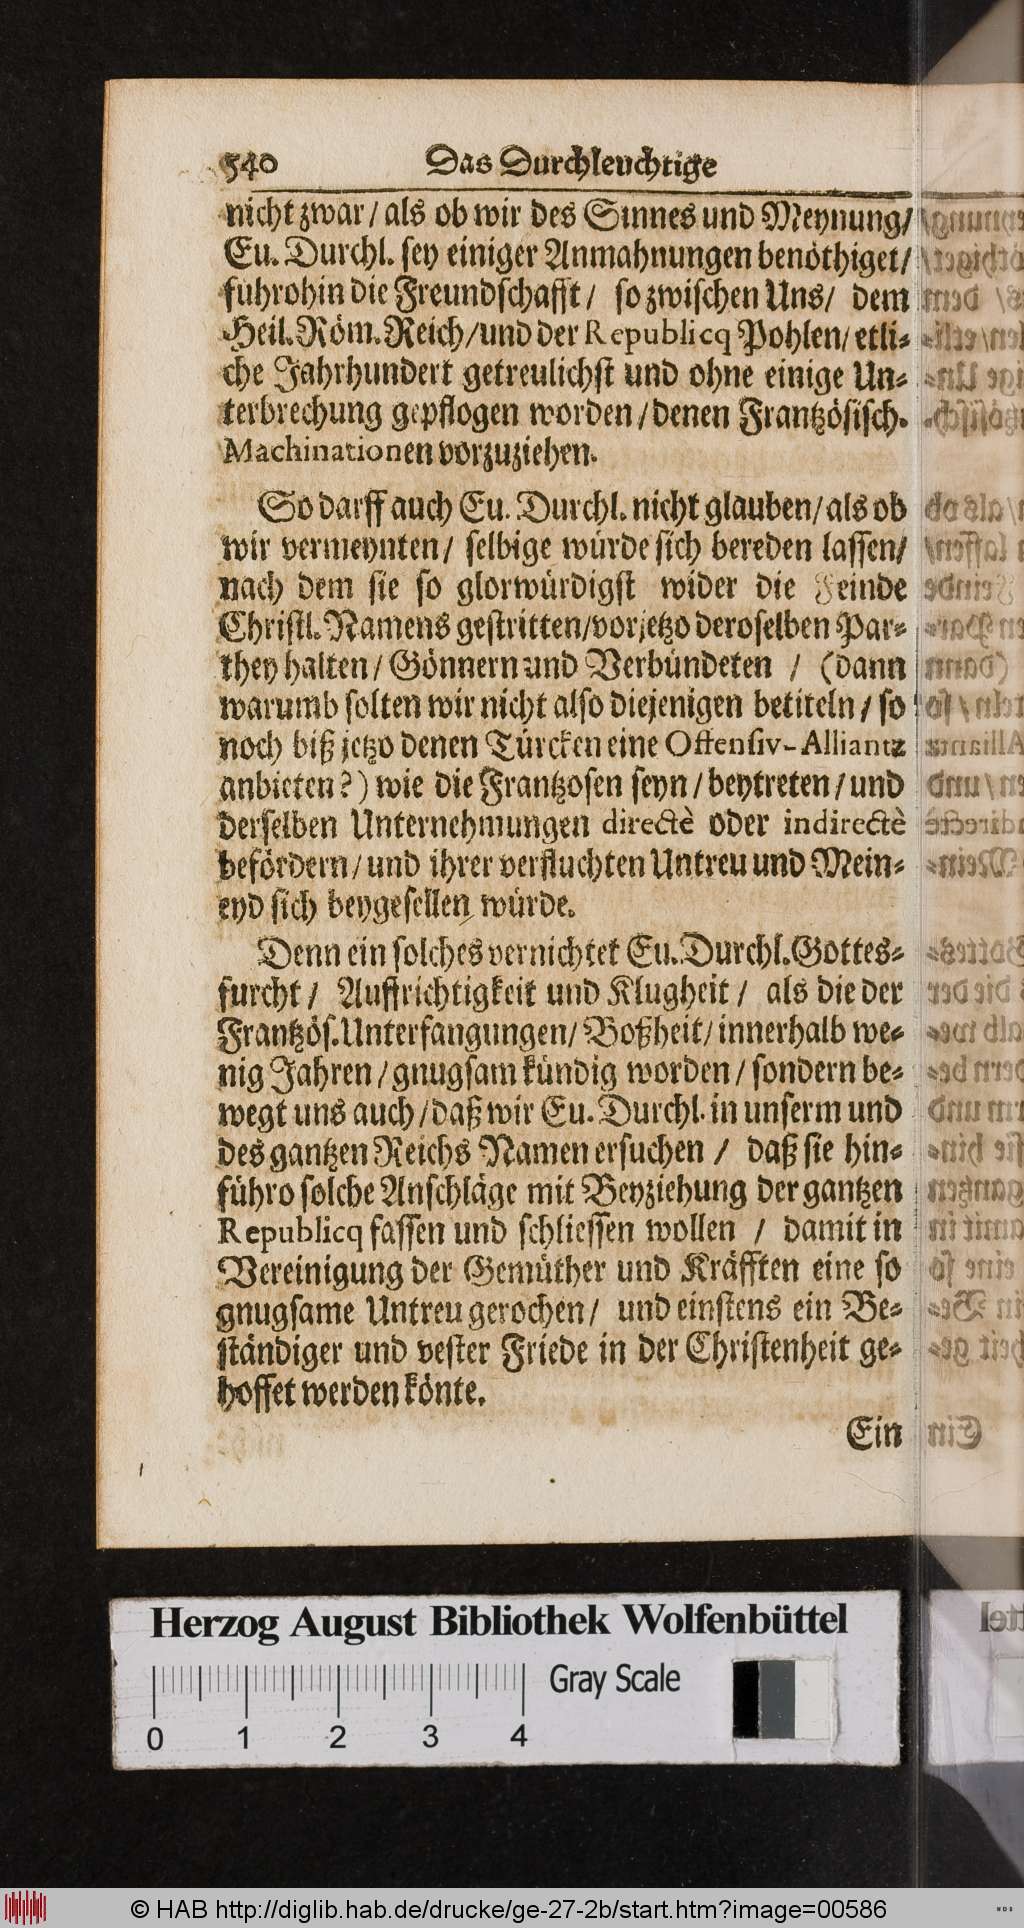 540 Das Durchleuchtige
nicht zwar / als ob wir des Sinnes und Meynung /
Eu. Durchl. sey einiger Anmahnungen benöthiget /
führohin die Freundschafft / so zwischen Uns / dem
Heil. Röm. Reich / und der Republicq Pohlen / etli-
che Jahrhundert getreulichst und ohne einige Un-
terbrechung gepflogen worden / denen Frantzösisch.
Machinationen vorzuziehen.
So darff auch Eu. Durchl. nicht glauben / als ob
wir vermeynten / selbige würde sich bereden lassen /
nach dem sie so glorwürdigst wider die Feinde
Christl. Namens gestritten / vorjetzo deroselben Par-
they halten / Gönnern und Verbündeten / (dann
warumb solten wir nicht also diejenigen betiteln / so
noch biß jetzo denen Türcken eine Offensiv-Alliantz
anbieten?) wie die Frantzosen seyn / beytreten / und
derselben Unternehmungen directè oder indirectè
befördern / und ihrer verfluchten Untreu und Mein-
eyd sich beygesellen würde.
Denn ein solches vernichtet Eu. Durchl. Gottes-
furcht / Auffrichtigkeit und Klugheit / als die der
Frantzös. Unterfangungen / Boßheit / innerhalb we-
nig Jahren / gnugsam kündig worden / sondern be-
wegt uns auch / daß wir Eu. Durchl. in unserm und
des gantzen Reichs Namen ersuchen / daß sie hin-
führo solche Anschläge mit Beyziehung der gantzen
Republicq fassen und schliessen wollen / damit in
Vereinigung der Gemüther und Kräfften eine so
gnugsame Untreu gerochen / und einstens ein Be-
ständiger und vester Friede in der Christenheit ge-
hoffet werden könte.
Ein
Herzog August Bibliothek Wolfenbüttel
0 1 2 3 4 Gray Scale
© HAB http://diglib.hab.de/drucke/ge-27-2b/start.htm?image=00586